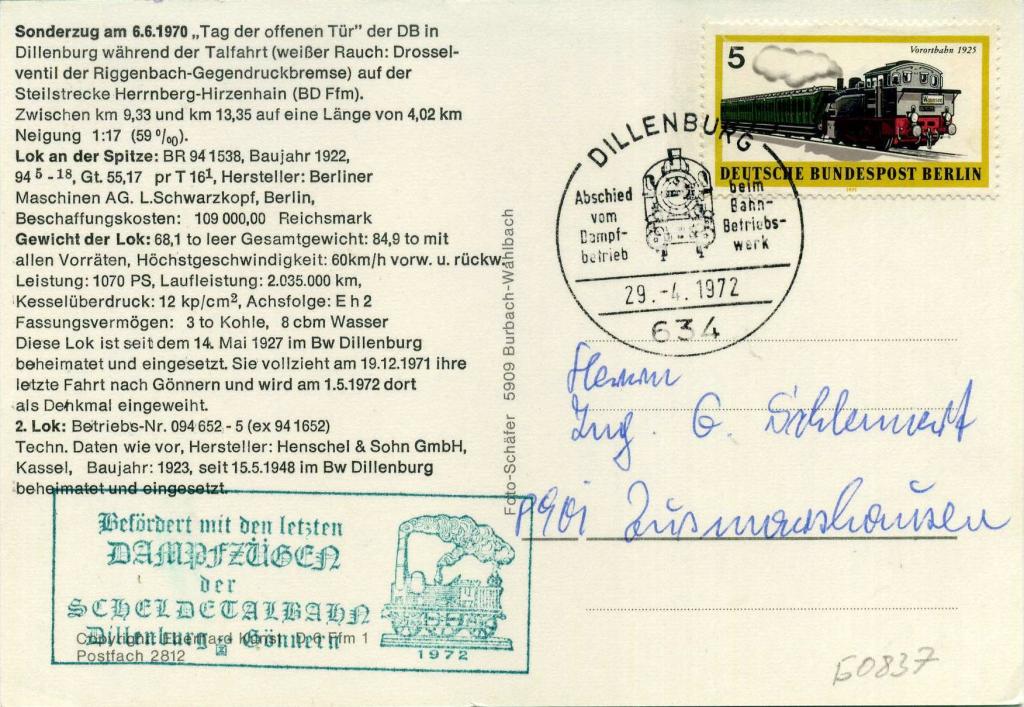 Sonderzug am 6.6.1970 „Tag der offenen Tür" der DB in
Dillenburg während der Talfahrt (weißer Rauch: Drossel-
ventil der Riggenbach-Gegendruckbremse) auf der
Steilstrecke Herrnberg-Hirzenhain (BD Ffm).
Zwischen km 9,33 und km 13,35 auf eine Länge von 4,02 km
Neigung 1:17 (59 º/₀₀).
Lok an der Spitze: BR 94 1538, Baujahr 1922,
94 ⁵ - ¹⁸, Gt. 55,17 pr T 16¹, Hersteller: Berliner
Maschinen AG. L.Schwarzkopf, Berlin,
Beschaffungskosten: 109 000,00 Reichsmark
Gewicht der Lok: 68,1 to leer Gesamtgewicht: 84,9 to mit
allen Vorräten, Höchstgeschwindigkeit: 60km/h vorw. u. rückw.
Leistung: 1070 PS, Laufleistung: 2.035.000 km,
Kesselüberdruck: 12 kp/cm², Achsfolge: E h 2
Fassungsvermögen: 3 to Kohle, 8 cbm Wasser
Diese Lok ist seit dem 14. Mai 1927 im Bw Dillenburg
beheimatet und eingesetzt. Sie vollzieht am 19.12.1971 ihre
letzte Fahrt nach Gönnern und wird am 1.5.1972 dort
als Denkmal eingeweiht.
2. Lok: Betriebs-Nr. 094 652 - 5 (ex 94 1652)
Techn. Daten wie vor, Hersteller: Henschel & Sohn GmbH,
Kassel, Baujahr: 1923, seit 15.5.1948 im Bw Dillenburg
beheimatet und eingesetzt.
Befördert mit den letzten
DAMPFZÜGEN
der
SCHELDETALBAHN
Dillenburg - Gönnern
1972
Copyright: Eberhard D 6 Ffm 1
Postfach 2812
Foto-Schäfer 5909 Burbach-Wahlbach
5
Vorortbahn 1925
DEUTSCHE BUNDESPOST BERLIN
1971
DILLENBURG
Abschied
vom
Dampf-
betrieb
beim
Bahn-
Betriebs-
werk
29.-4.1972
634
Herrn
Ing. G.
8901 Zusmarshausen
G0837